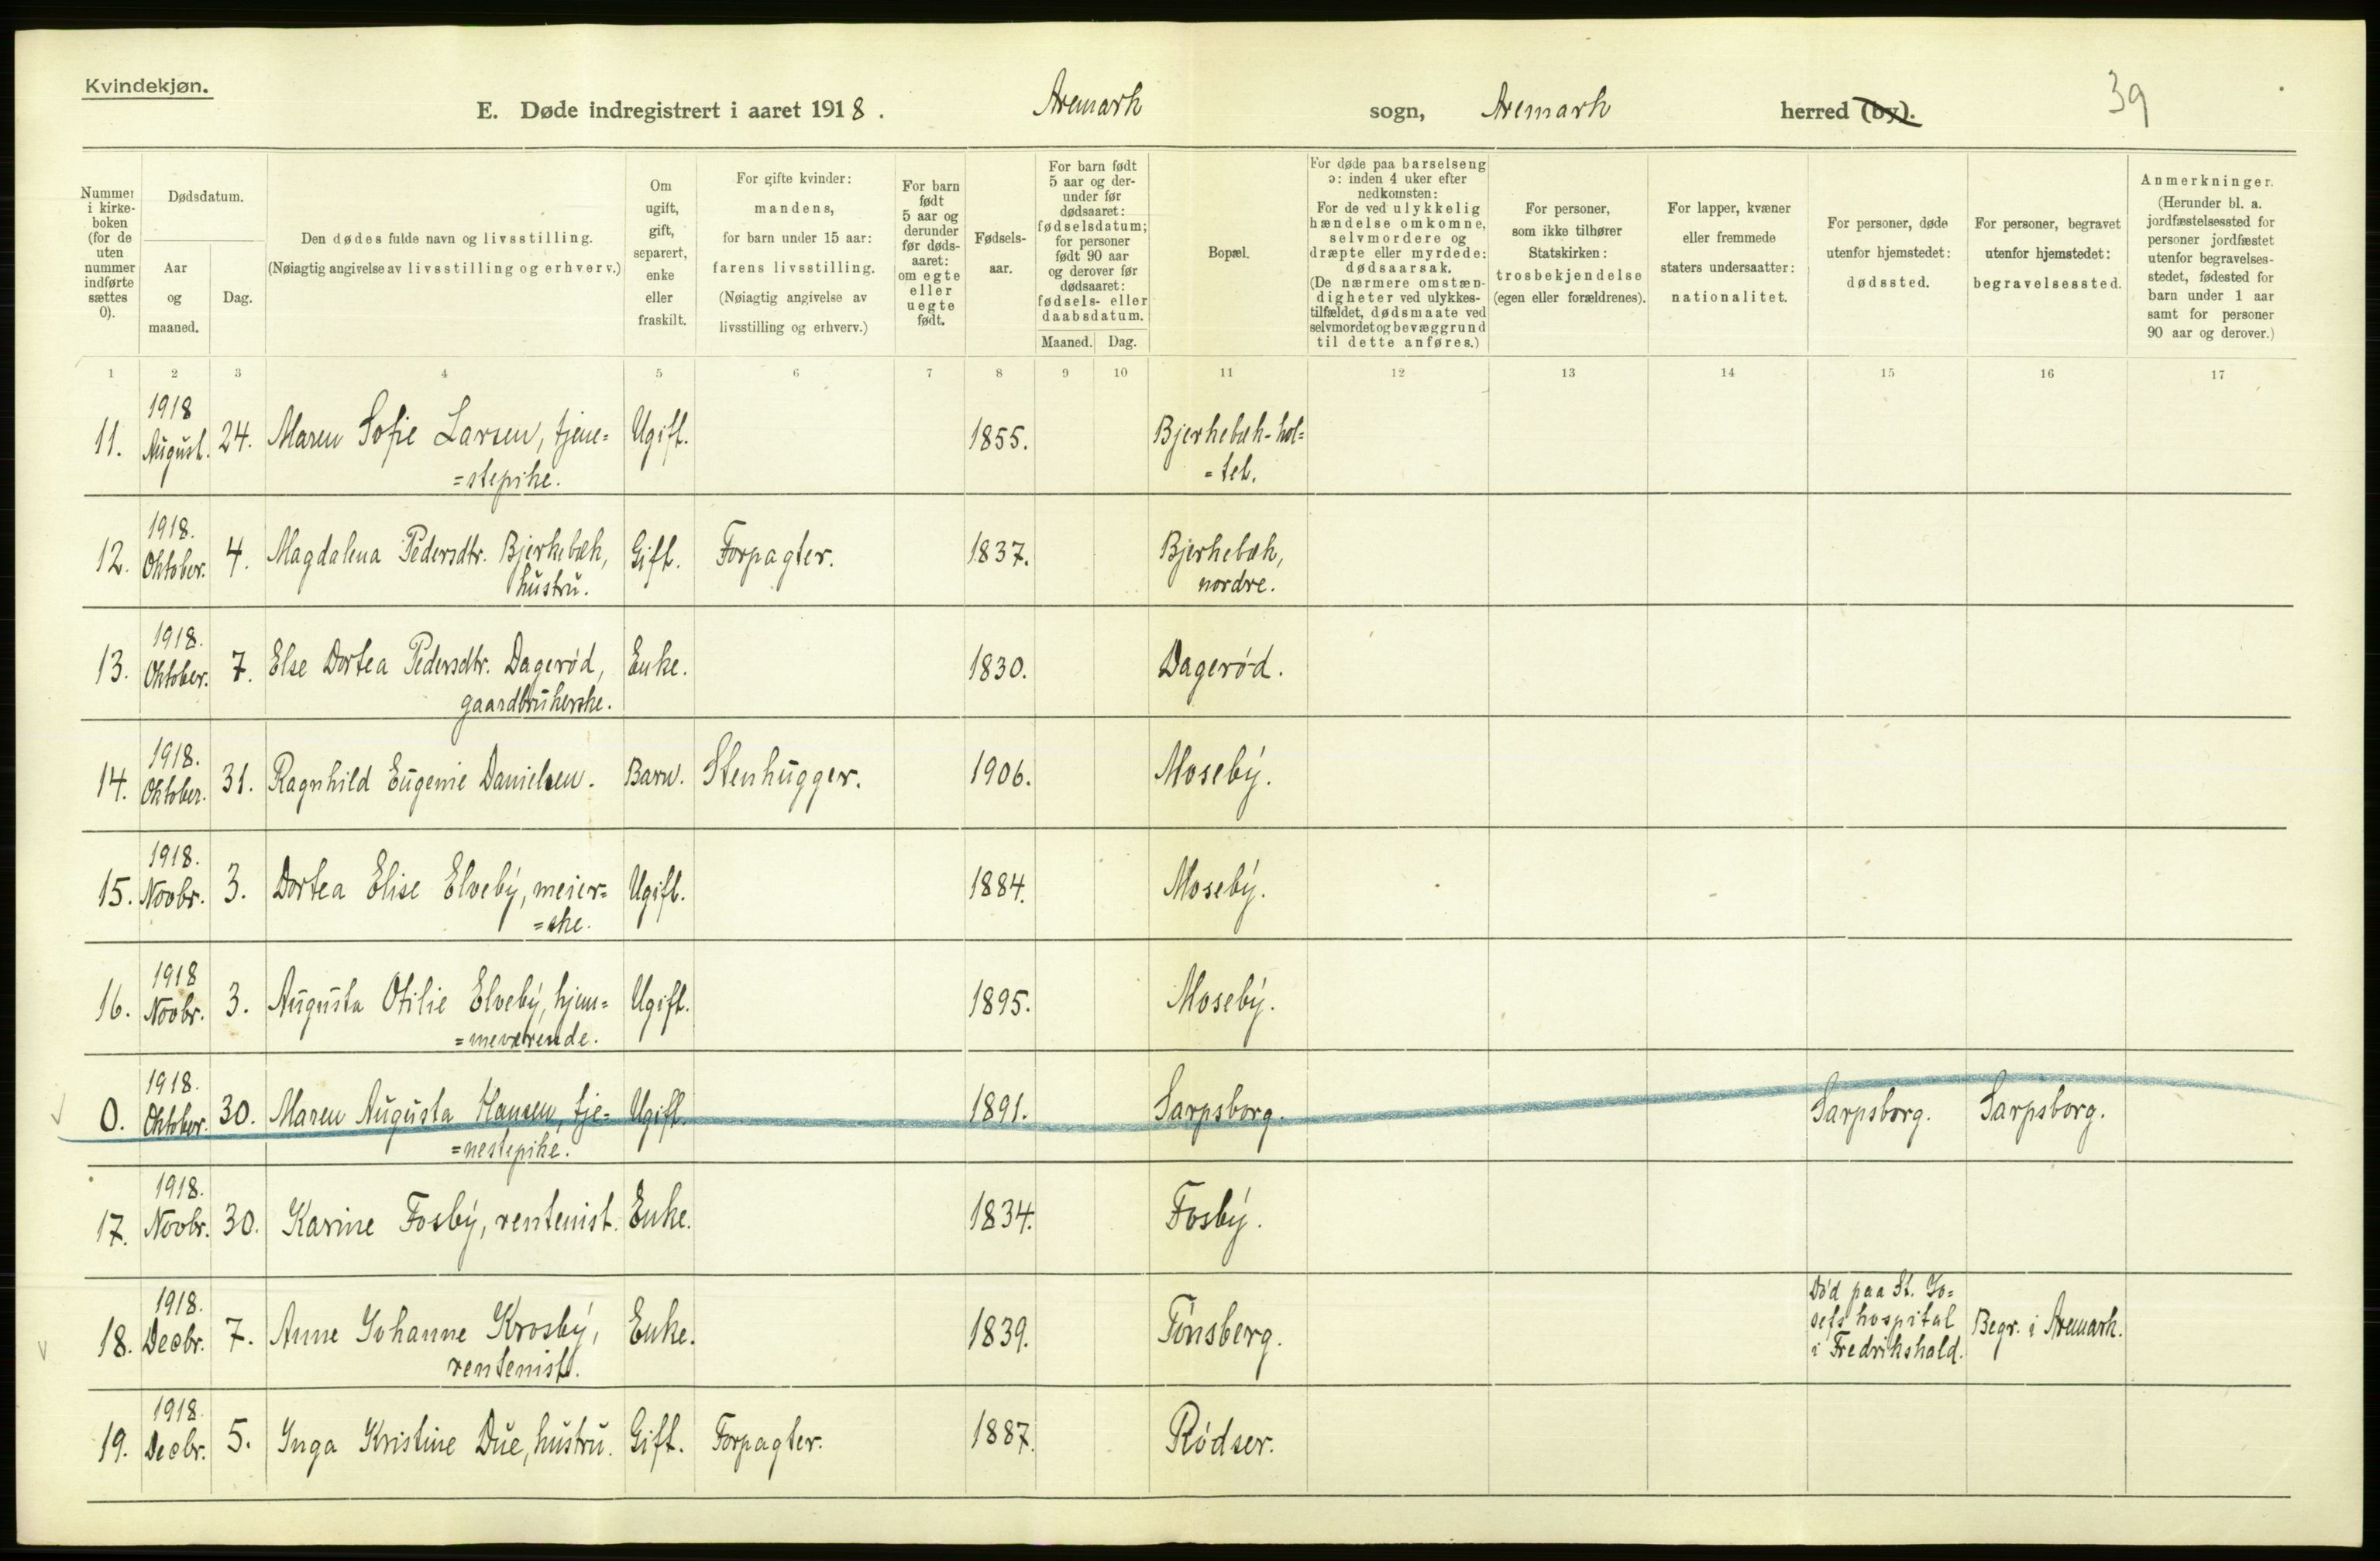 Kvindekjøn.
E. Døde indregistrert i aaret 1918. Aremark sogn, Aremark herred (by). 39
Nummer
i kirke-
boken
(for de
uten
nummer
indførte
sættes
0).
Dødsdatum.
Aar
og
maaned.
Dag.
Den dødes fulde navn og livsstilling.
(Nøiagtig angivelse av livsstilling og erhverv.)
Om
ugift,
gift,
separert,
enke
eller
fraskilt.
For gifte kvinder:
mandens,
for barn under 15 aar:
farens livsstilling.
(Nøiagtig angivelse av
livsstilling og erhverv.)
For barn
født
5 aar og
derunder
før døds-
aaret:
om egte
eller
uegte
født.
Fødsels-
aar.
For barn født
5 aar og der-
under før
dødsaaret:
fødselsdatum;
for personer
født 90 aar
og derover før
dødsaaret:
fødsels- eller
daabsdatum.
Maaned. Dag.
Bopæl.
For døde paa barselseng
ɔ: inden 4 uker efter
nedkomsten:
For de ved ulykkelig
hændelse omkomne,
selvmordere og
dræpte eller myrdede:
dødsaarsak.
(De nærmere omstæn-
digheter ved ulykkes-
tilfældet, dødsmaate ved
selvmordet og bevæggrund
til dette anføres.)
For personer,
som ikke tilhører
Statskirken:
trosbekjendelse
(egen eller forældrenes).
For lapper, kvæner
eller fremmede
staters undersaatter:
nationalitet.
For personer, døde
utenfor hjemstedet:
dødssted.
For personer, begravet
utenfor hjemstedet:
begravelsessted.
Anmerkninger.
(Herunder bl. a.
jordfæstelsessted for
personer jordfæstet
utenfor begravelses-
stedet, fødested for
barn under 1 aar
samt for personer
90 aar og derover.)
1 2 3 4 5 6 7 8 9 10 11 12 13 14 15 16 17
1918
11. August. 24. Maren Sofie Larsen, tjene= Ugift. 1855. Bjerkebæk-hol=
=stepike. =tet.
1918.
12. Oktober. 4. Magdalena Pedersdtr. Bjerkebæk, Gift. Forpagter. 1837. Bjerkebæk,
hustru. nordre.
1918.
13. Oktober. 7. Else Dortea Pedersdtr. Dagerød, Enke. 1830. Dagerød.
gaardbrukerske.
1918.
14. Oktober. 31. Ragnhild Eugenie Danielsen. Barn. Stenhugger. 1906. Moseby.
1918.
15. Novbr. 3. Dortea Elise Elveby, meier= Ugift. 1884. Moseby.
=ske.
1918
16. Novbr. 3. Augusta Otilie Elveby, hjem= Ugift. 1895. Moseby.
=meværende.
1918.
0. Oktober. 30. Maren Augusta Hansen, tje= Ugift. 1891. Sarpsborg. Sarpsborg. Sarpsborg.
=nestepike.
1918.
17. Novbr. 30. Karine Fosby, rentenist. Enke. 1834. Fosby.
1918. Død paa St. Jo=
18. Decbr. 7. Anne Johanne Krosby, Enke. 1839. Tønsberg. sefs hospital Begr. i Aremark.
rentenist. i Fredrikshald.
1918.
19. Decbr. 5. Inga Kristine Due, hustru. Gift. Forpagter. 1887. Rødser.